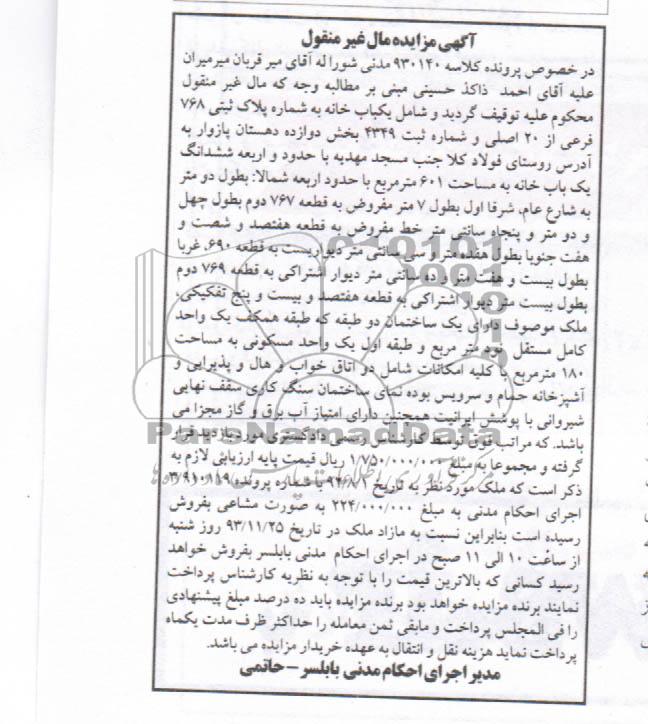 آگهی مزایده مال غیر منقول
در خصوص پرونده کلاسه ۹۳۰۱۴۰ مدنی شورا له آقای میر قربان میرمیران
علیه آقای احمد ذاکذ حسینی مبنی بر مطالبه وجه که مال غیر منقول
محکوم علیه توقیف گردید و شامل یکباب خانه به شماره پلاک ثبتی ۷۶۸
فرعی از ۲۰ اصلی و شماره ثبت ۴۳۴۹ بخش دوازده دهستان پازوار به
آدرس روستای فولاد کلا جنب مسجد مهدیه با حدود و اربعه ششدانگ
یک باب خانه به مساحت ۶۰۱ مترمربع با حدود اربعه شمالا: بطول دو متر
به شارع عام، شرقا اول بطول ۷ متر مفروض به قطعه ۷۶۷ دوم بطول چهل
و دو متر و پنجاه سانتی متر خط مفروض به قطعه هفتصد و شصت و
هفت جنوبا بطول هفده متر و سی سانتی متر دیواریست به قطعه ۶۹۰، غربا
بطول بیست و هفت متر و ده سانتی متر دیوار اشتراکی به قطعه ۷۶۹ دوم
بطول بیست متر دیوار اشتراکی به قطعه هفتصد و بیست و پنج تفکیکی.
ملک موصوف دارای یک ساختمان دو طبقه که طبقه همکف یک واحد
کامل مستقل نود متر مربع و طبقه اول یک واحد مسکونی به مساحت
۱۸۰ مترمربع با کلیه امکانات شامل دو اتاق خواب و هال و پذیرایی و
آشپزخانه حمام و سرویس بوده نمای ساختمان سنگ کاری سقف نهایی
شیروانی با پوشش ایرانیت همچنین دارای امتیاز آب برق و گاز مجزا می
باشد. که مراتب فوق توسط کارشناس رسمی دادگستری مورد بازدید قرار
گرفته و مجموعا به مبلغ ۱/۷۵۰/۰۰۰/۰۰۰ ریال قیمت پایه ارزیابی لازم به
ذکر است که ملک مورد نظر به تاریخ ۹۳/۸/۱ با شماره پرونده ۳/۹۱۰۱۱۹
اجرای احکام مدنی به مبلغ ۲۲۴/۰۰۰/۰۰۰ به صورت مشاعی بفروش
رسیده است بنابراین نسبت به مازاد ملک در تاریخ ۹۳/۱۱/۲۵ روز شنبه
از ساعت ۱۰ الی ۱۱ صبح در اجرای احکام مدنی بابلسر بفروش خواهد
رسید کسانی که بالاترین قیمت را با توجه به نظریه کارشناس پرداخت
نمایند برنده مزایده خواهد بود برنده مزایده باید ده درصد مبلغ پیشنهادی
را فی المجلس پرداخت و مابقی ثمن معامله را حداکثر ظرف مدت یکماه
پرداخت نماید هزینه نقل و انتقال به عهده خریدار مزایده می باشد.
مدیر اجرای احکام مدنی بابلسر – حاتمی
ParsNamadData